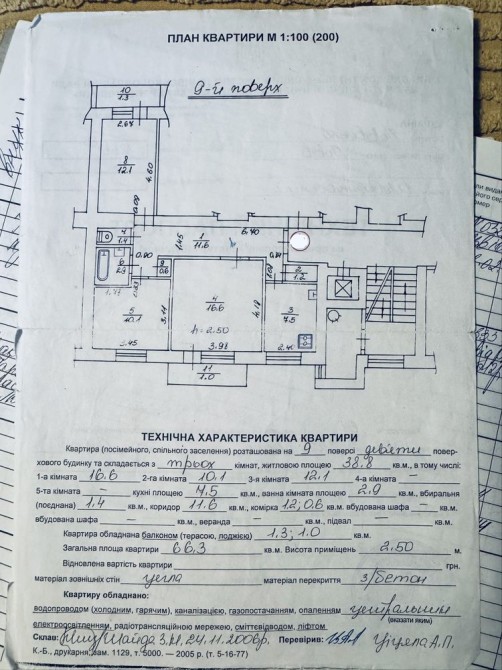 ПЛАН КВАРТИРИ М 1:100 (200)
9-й поверх
10
1.3
2.64
8
12.1
4.60
1
11.6
6.40
1.45
7
1.4
6
2.9
0.90
9
0.6
2
1.2
5
10.1
3.11
3.45
4
16.6
h=2.50
4.18
3.98
3
7.5
2.41
11
1.0
ТЕХНІЧНА ХАРАКТЕРИСТИКА КВАРТИРИ
Квартира (посімейного, спільного заселення) розташована на 9 поверсі девяти повер-
хового будинку та складається з трьох кімнат, житловою площею 38.8 кв.м., в тому числі:
1-а кімната 16.6 2-га кімната 10.1 3-я кімната 12.1 4-а кімната — кв.м.,
5-та кімната — кухні площею 7.5 кв.м., ванна кімната площею 2.9 кв.м., вбиральня
(поєднана) 1.4 кв.м., коридор 11.6 кв.м., комірка 1.2; 0.6 кв.м. вбудована шафа — кв.м.,
вбудована шафа — кв.м., веранда — кв.м., підвал — кв.м.
Квартира обладнана балконом (терасою, лоджією) 1.3; 1.0 кв.м.
Загальна площа квартири 66.3 кв.м. Висота приміщень 2.50 м.
Відновлена вартість квартири грн.
матеріал зовнішніх стін цегла матеріал перекриття з/бетон
Квартиру обладнано:
водопроводом (холодним, гарячим), каналізацією, газопостачанням, опаленням центральним
(вказати яким)
електроосвітленням, радіотрансляційною мережею, сміттєвідводом, ліфтом
Склав: 24.11.2006р. Перевірив:
К.-Б., друкарня, зам. 1129, т. 5000. — 2005 р. (т. 5-16-77)